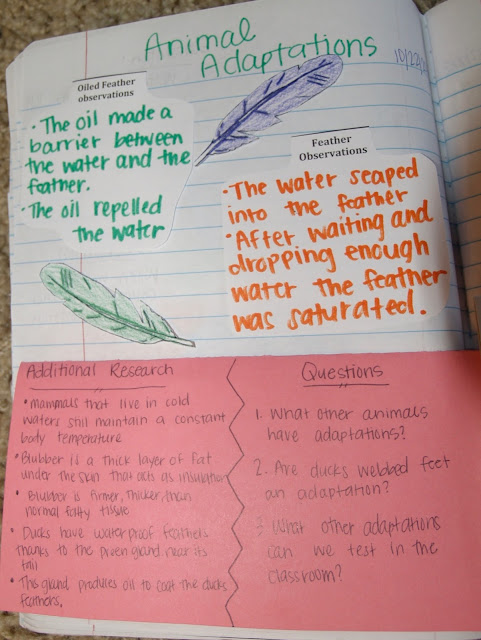 Animal
Adaptations
10/22/
Oiled Feather
observations
• The oil made a
barrier between
the water and the
feather.
• The oil repelled
the water
Feather
Observations
• The water seaped
into the feather
• After waiting and
dropping enough
water the feather
was saturated.
Additional Research
• Mammals that live in cold
waters still maintain a constant
body temperature
• Blubber is a thick layer of fat
under the skin that acts as insulation
• Blubber is firmer, thicker, than
normal fatty tissue
• Ducks have waterproof feathers
thanks to the preen gland near its
tail
• This gland produces oil to coat the ducks
feathers.
Questions
1. What other animals
have adaptations?
2. Are ducks webbed feet
an adaptation?
3. What other adaptations
can we test in the
classroom?